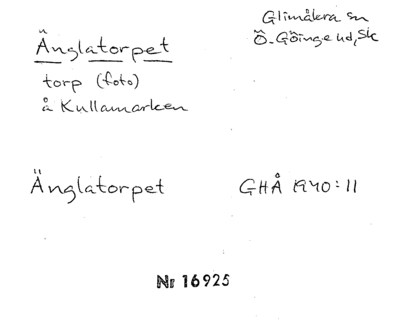 Änglatorpet
Glimåkra sn
Ö. Göinge hd, Sk
torp (foto)
å Kullamarken
Änglatorpet
GHÅ 1940:11
Nr 16925